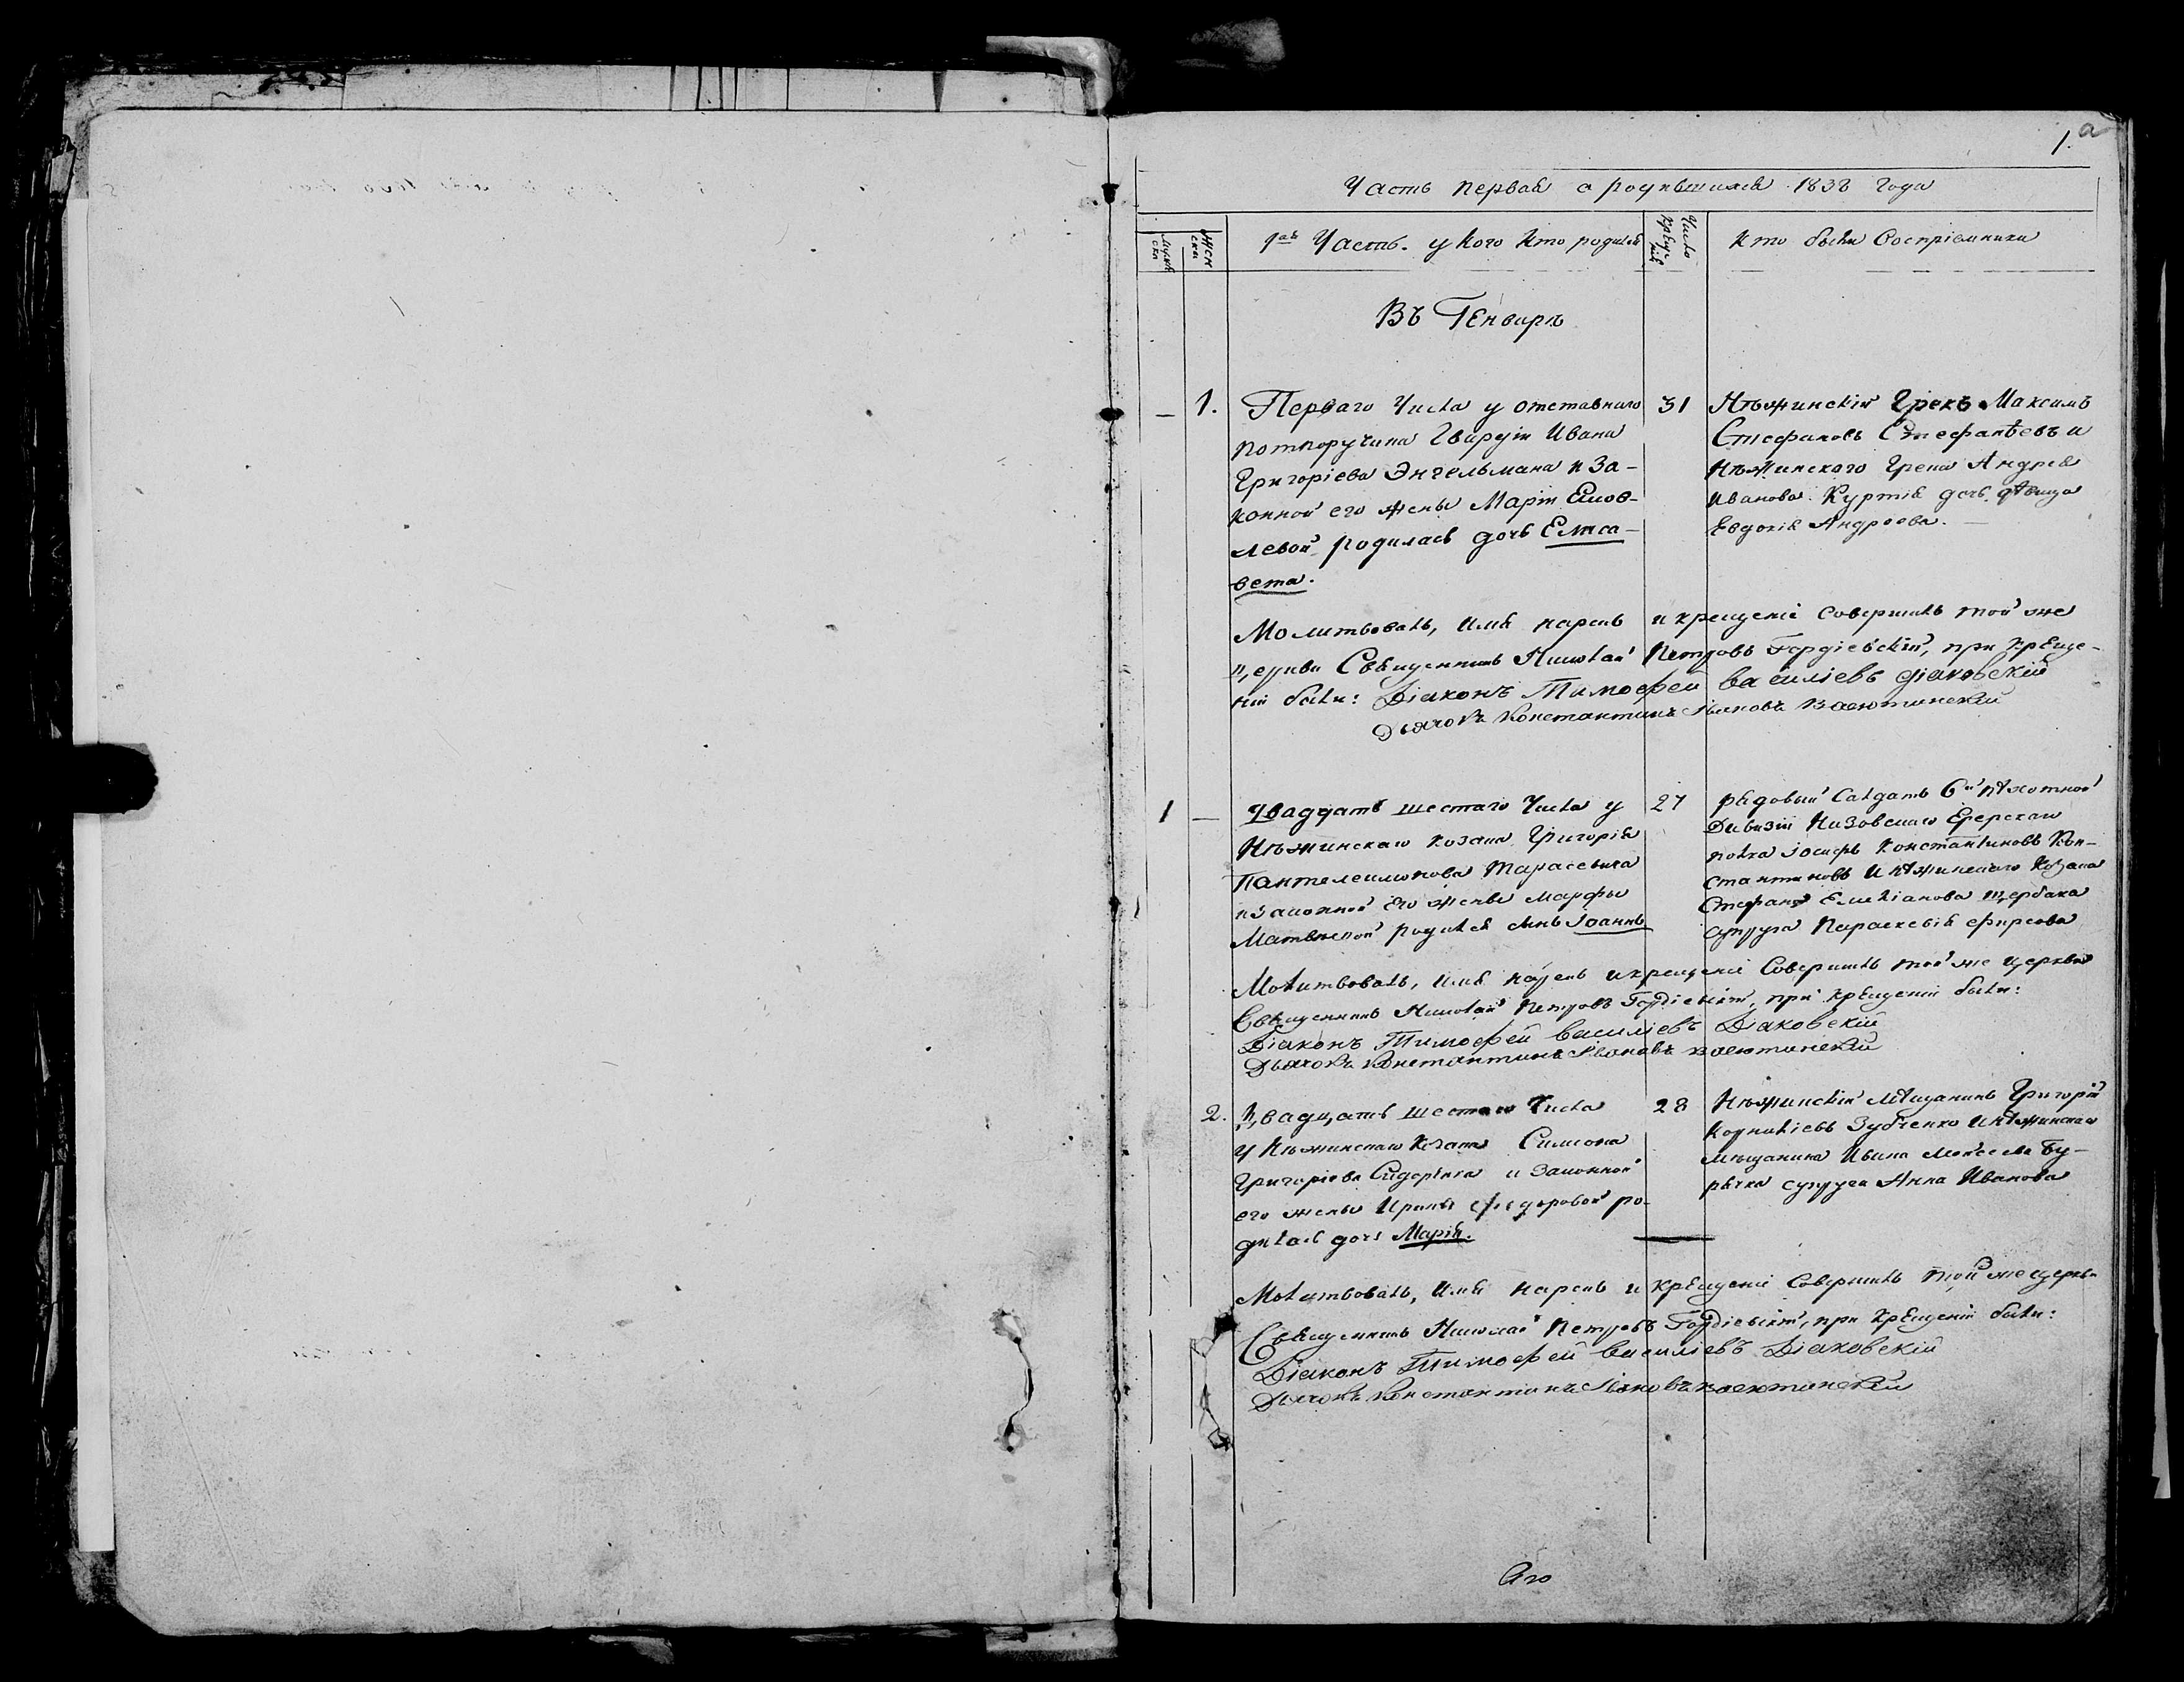 1.а
Часть первая о родившихся 1838 года
Мужеска
Женска
1ая Часть. у кого кто родился
Число крещенія
кто были Воспріемники
Въ Генварѣ
— 1.
Перваго Числа у отставнаго
потпоручика Гвардіи Ивана
Григоріева Энгельмана и За-
конной его жены Маріи
левой родилась дочь Елиса-
вета.
31
Нѣжинскій Грекъ Максимъ
Стефановъ Стефанѣевъ и
Нѣжинскаго Грека Андрея
Иванова дочь дѣвица
Евдокія Андреева. —
Молитвовалъ, имя нарекъ и крещеніе совершилъ той же
церкви Священникъ Николай Петровъ Гордіевскій, при креще-
ніи были: Діаконъ Тимофей Василіевъ Діаковскій
Дьячокъ Константинъ Івановъ
1 —
Двадцать шестаго Числа у
Нѣжинскаго козака Григорія
Пантелеимонова Тарасевича
и законной его жены Марфы
Матвѣевой родился сынъ Іоаннъ
27
рядовый Салдатъ 6й пѣхотной
Дивизіи Низовскаго Егерскаго
полка Іосифъ Константиновъ Кон-
стантиновъ и нѣжинскаго Козака
Стефана Емеліанова Щербака
супруга Параскевія Фирсова
Молитвовалъ, имя нарекъ и крещеніе Совершилъ той же церкви
Священникъ Николай Петровъ Гордіевскій, при крещеніи были:
Діаконъ Тимофей Василіевъ Діаковскій
Дьячокъ Константинъ Івановъ
2.
Двадцать шестаго Числа
у Нѣжинскаго Козака Симеона
Григоріева Сидоренка и Законной
его жены Ирины Федоровой ро-
дилась дочь Марія.
28
Нѣжинскій мѣщанинъ Григорій
Корниліевъ Зубченко и нѣжинскаго
мѣщанина Ивана Моисеева Бу-
рячка супруга Анна Иванова
Молитвовалъ, имя нарекъ и крещеніе Совершилъ той же церкви
Священникъ Николай Петровъ Гордіевскій, при крещеніи были:
Діаконъ Тимофей Василіевъ Діаковскій
Дьячокъ Константинъ Івановъ